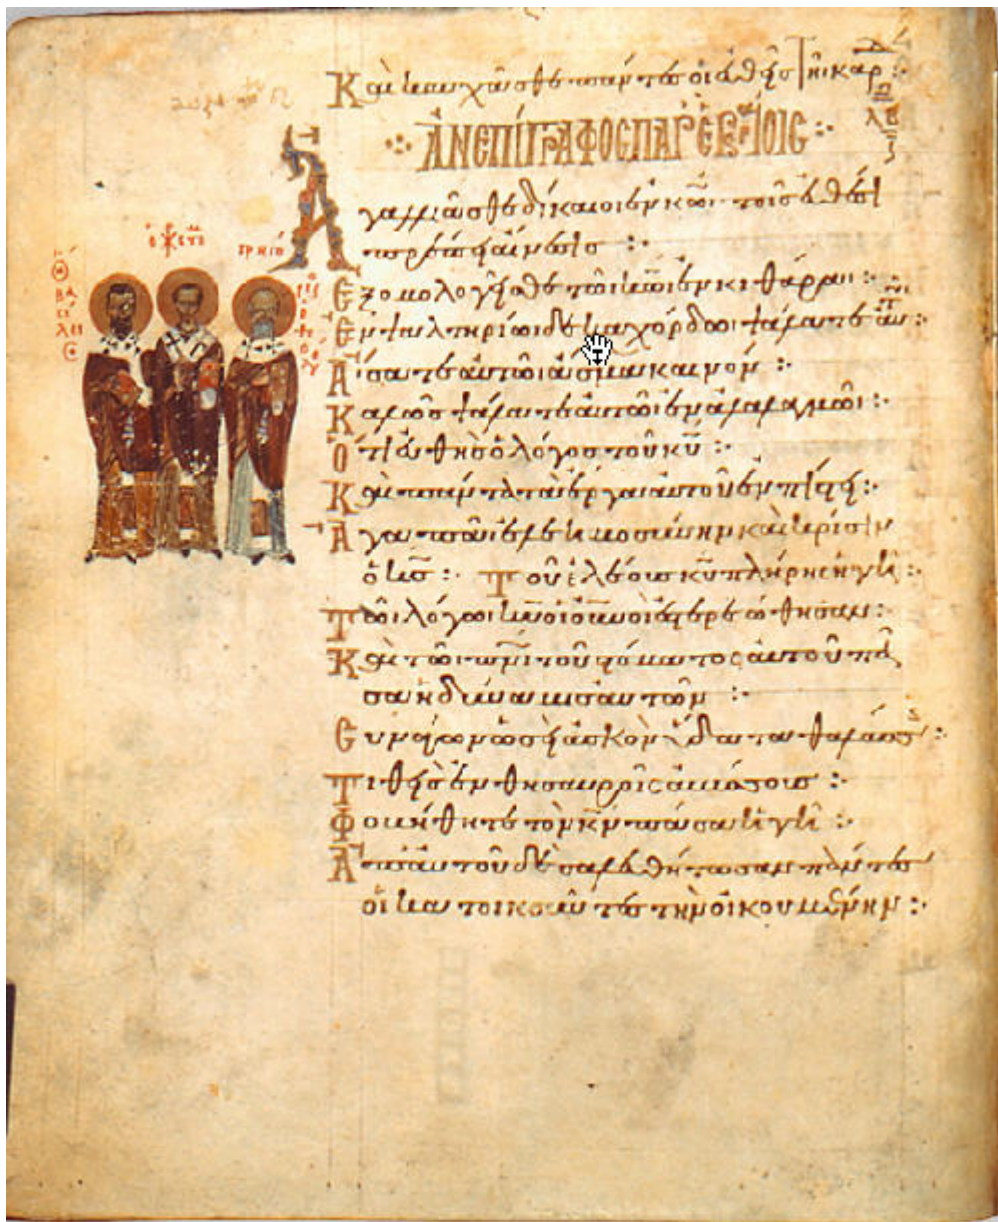 Καὶ καυχᾶσθε πάντες οἱ εὐθεῖς τῆι καρδ
ΑΝΕΠΙΓΡΑΦΟC ΠΑΡ ΕΒΡΑΙΟΙC
Ἀγαλλιᾶσθε δίκαιοι ἐν κ̅ω̅ι· τοῖς εὐθέσι
πρέπει αἴνεσις :·
Ἐξομολογεῖσθε τῶι κ̅ω̅ι ἐν κιθάραι :·
Ἐν ψαλτηρίωι δεκαχόρδωι ψάλατε αὐτῶι :·
Ἄισατε αὐτῶι ἆσμα καινόν :·
Καλῶς ψάλατε αὐτῶι ἐν ἀλαλαγμῶι :·
Ὅτι εὐθὴς ὁ λόγος τοῦ κ̅υ̅ :·
Καὶ πάντα τὰ ἔργα αὐτοῦ ἐν πίστει :·
Ἀγαπᾶι ἐλεημοσύνην καὶ κρίσιν
ὁ κ̅ς̅ :· Τοῦ ἐλέους κ̅υ̅ πλήρης ἡ γῆ :·
Τῶι λόγωι κ̅υ̅ οἱ ο̅υ̅νοι ἐστερεώθησαν :·
Καὶ τῶι π̅ν̅ι̅ τοῦ στόματος αὐτοῦ πᾶ
σα ἡ δύναμις αὐτῶν :·
Συνάγων ὡσεὶ ἀσκὸν ὕδατα θαλάσσης :·
Τιθεὶς ἐν θησαυροῖς ἀβύσσους :·
Φοβηθήτω τὸν κ̅ν̅ πᾶσα ἡ γῆ :·
Ἀπ' αὐτοῦ δὲ σαλευθήτωσαν πάντες
οἱ κατοικοῦντες τὴν οἰκουμένην :·